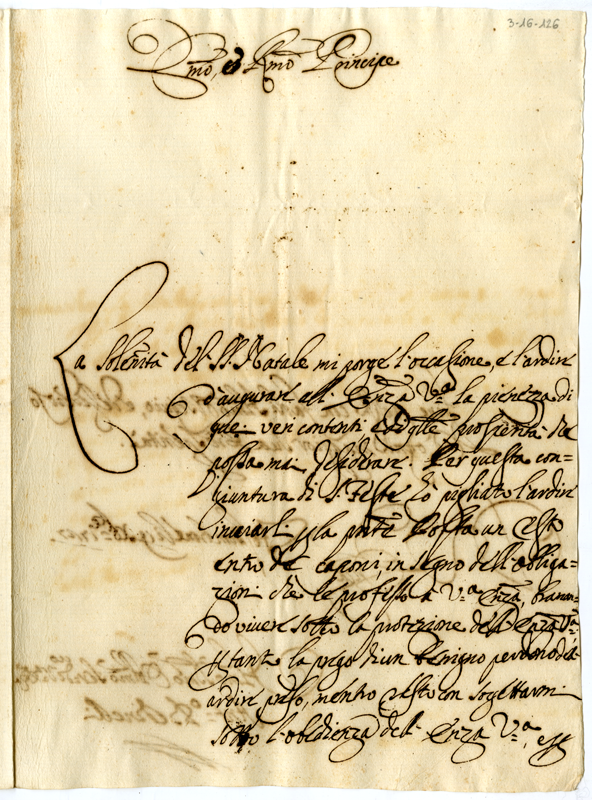 3-16-126
Emo, e Rmo Principe
La Solennità del SS. Natale mi porge l'occasione, e l'ardire
d'augurare all' Emza Va la pienezza di
que veri contenti e di qlle prosperità che
possa mai desiderare. Per questa con=
giuntura di S. Feste hò pigliato l'ardire
inviarli p la pnte Posta un
de caponi, in segno dell' obliga=
zioni che le professo à Va Emza, braman=
do vivere sotto la protezione dell' Emza Va
la prego di un benigno perdono dell'
ardire preso, mentre resto con sogettarmi
sotto l'obedienza dell' Emza Va, e